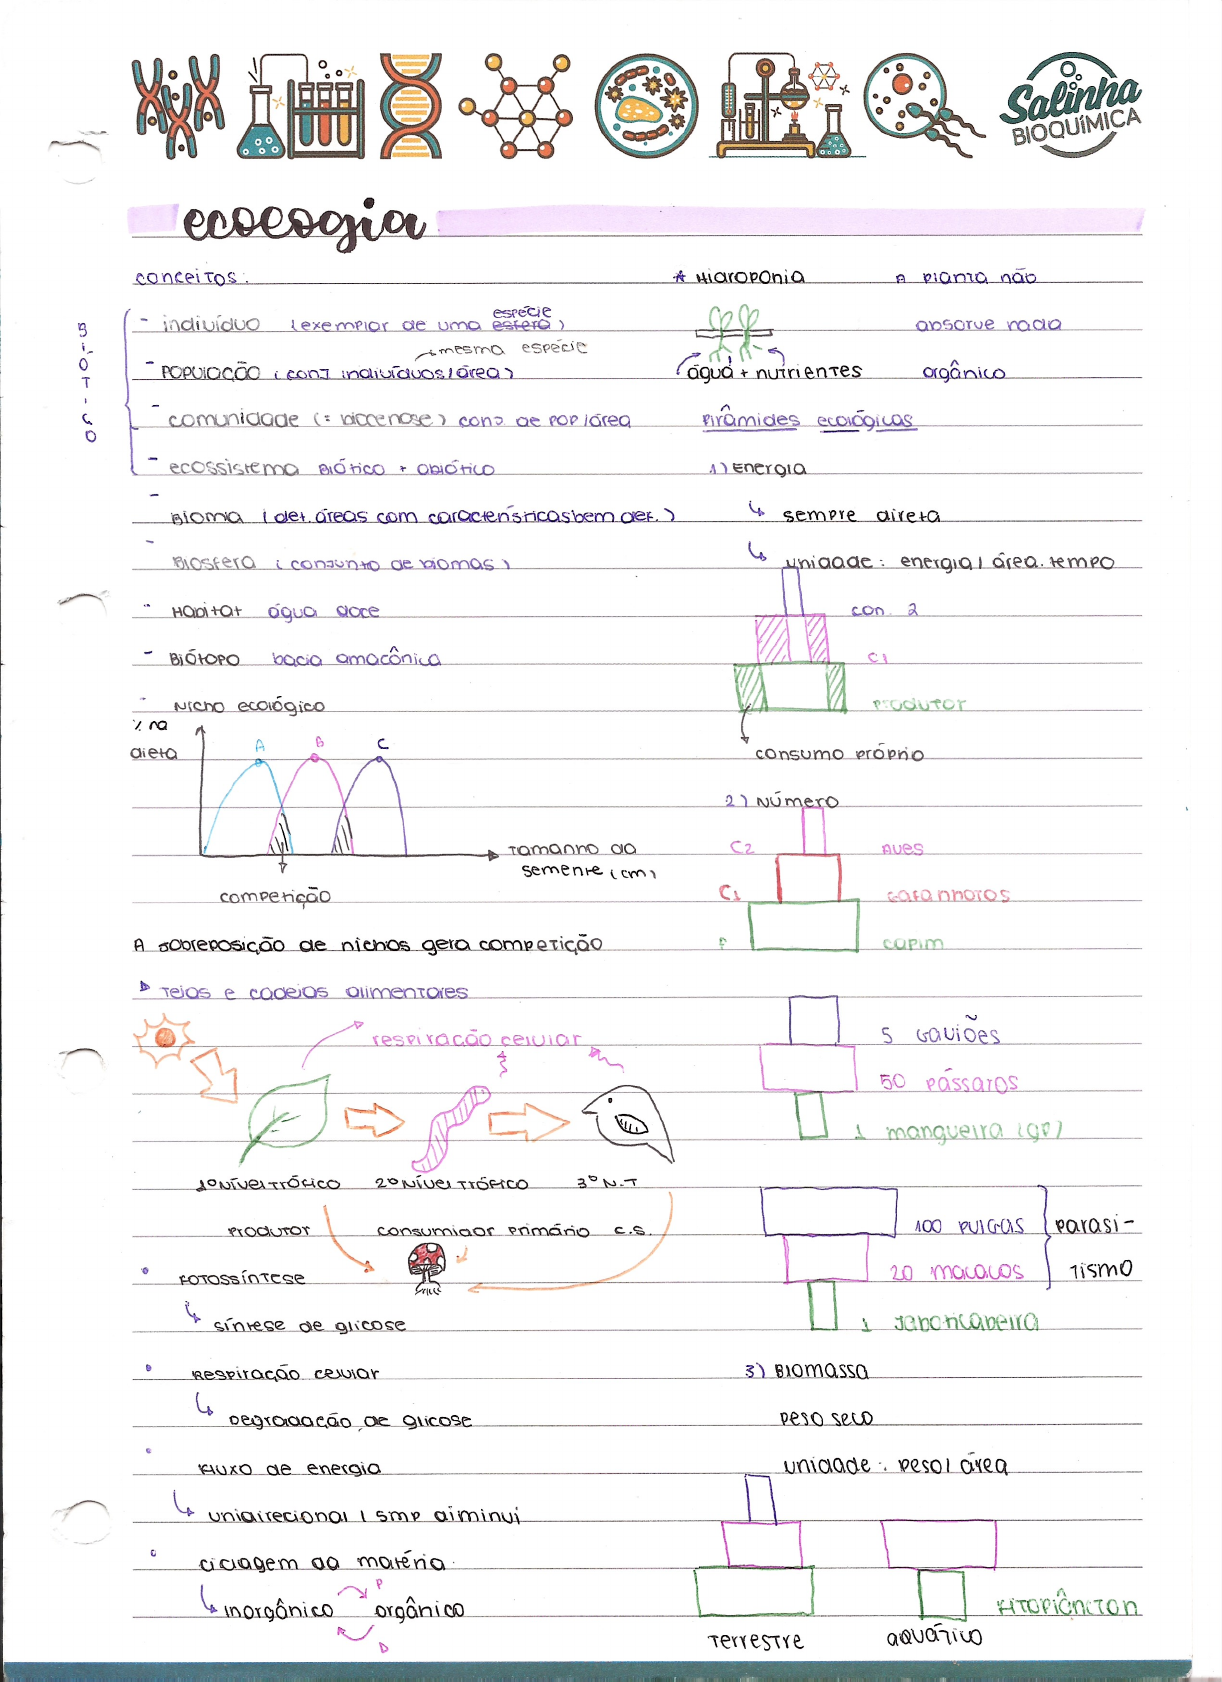 Salinha
BIOQUÍMICA
ecologia
conceitos:
BIÓTICO
- indivíduo (exemplar de uma esfera espécie)
- POPULAÇÃO (conj indivíduos/área)
↳ mesma espécie
- comunidade (= biocenose) conj. de POP/área
- ecossistema BIÓTICO + abiótico
- BIOMA (det. áreas com características bem def.)
- BIOSFERA (conjunto de biomas)
- Habitat água doce
- BIÓTOPO bacia amazônica
- Nicho ecológico
% na dieta
A B C
Tamanho da semente (cm)
competição
A sobreposição de nichos gera competição
▷ Teias e cadeias alimentares
respiração celular
1º NÍVEL TRÓFICO 2º NÍVEL TRÓFICO 3º N.T
PRODUTOR consumidor primário c.s.
• FOTOSSÍNTESE
↳ síntese de glicose
• Respiração celular
↳ Degradação de glicose
• Fluxo de energia
↳ unidirecional / smp diminui
• ciclagem da matéria.
↳ inorgânico orgânico
P
D
* Hidroponia
A planta não
absorve nada
orgânico
água + nutrientes
Pirâmides ecológicas
1) Energia
↳ sempre direta
↳ unidade: energia / área.tempo
con. 2
C1
PRODUTOR
consumo próprio
2) Número
C2 AVES
C1 Gafanhotos
P capim
5 Gaviões
50 Pássaros
1 mangueira (gp)
100 PULGAS
20 macacos
parasitismo
1 Jaboticabeira
3) BIOMASSA
peso seco
unidade: peso / área
FITOPLÂNCTON
Terrestre
aquático